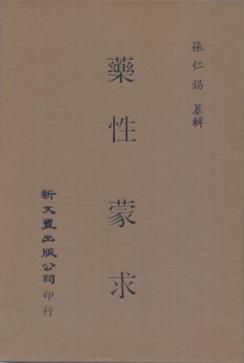 張仁錫 纂輯
藥性蒙求
新文豐出版公司 印行